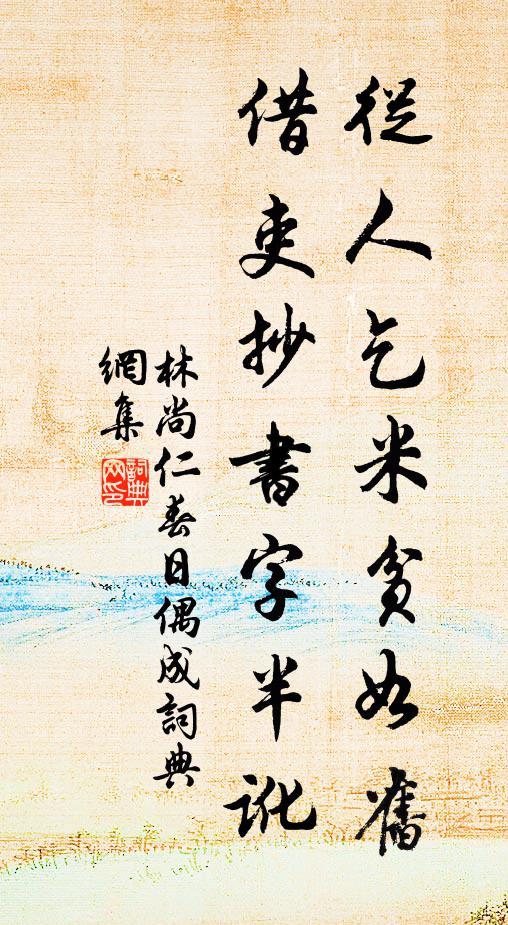 從人乞米貧如舊
借吏抄書字半訛
林尚仁春日偶成詞典
網集
詞典
网印